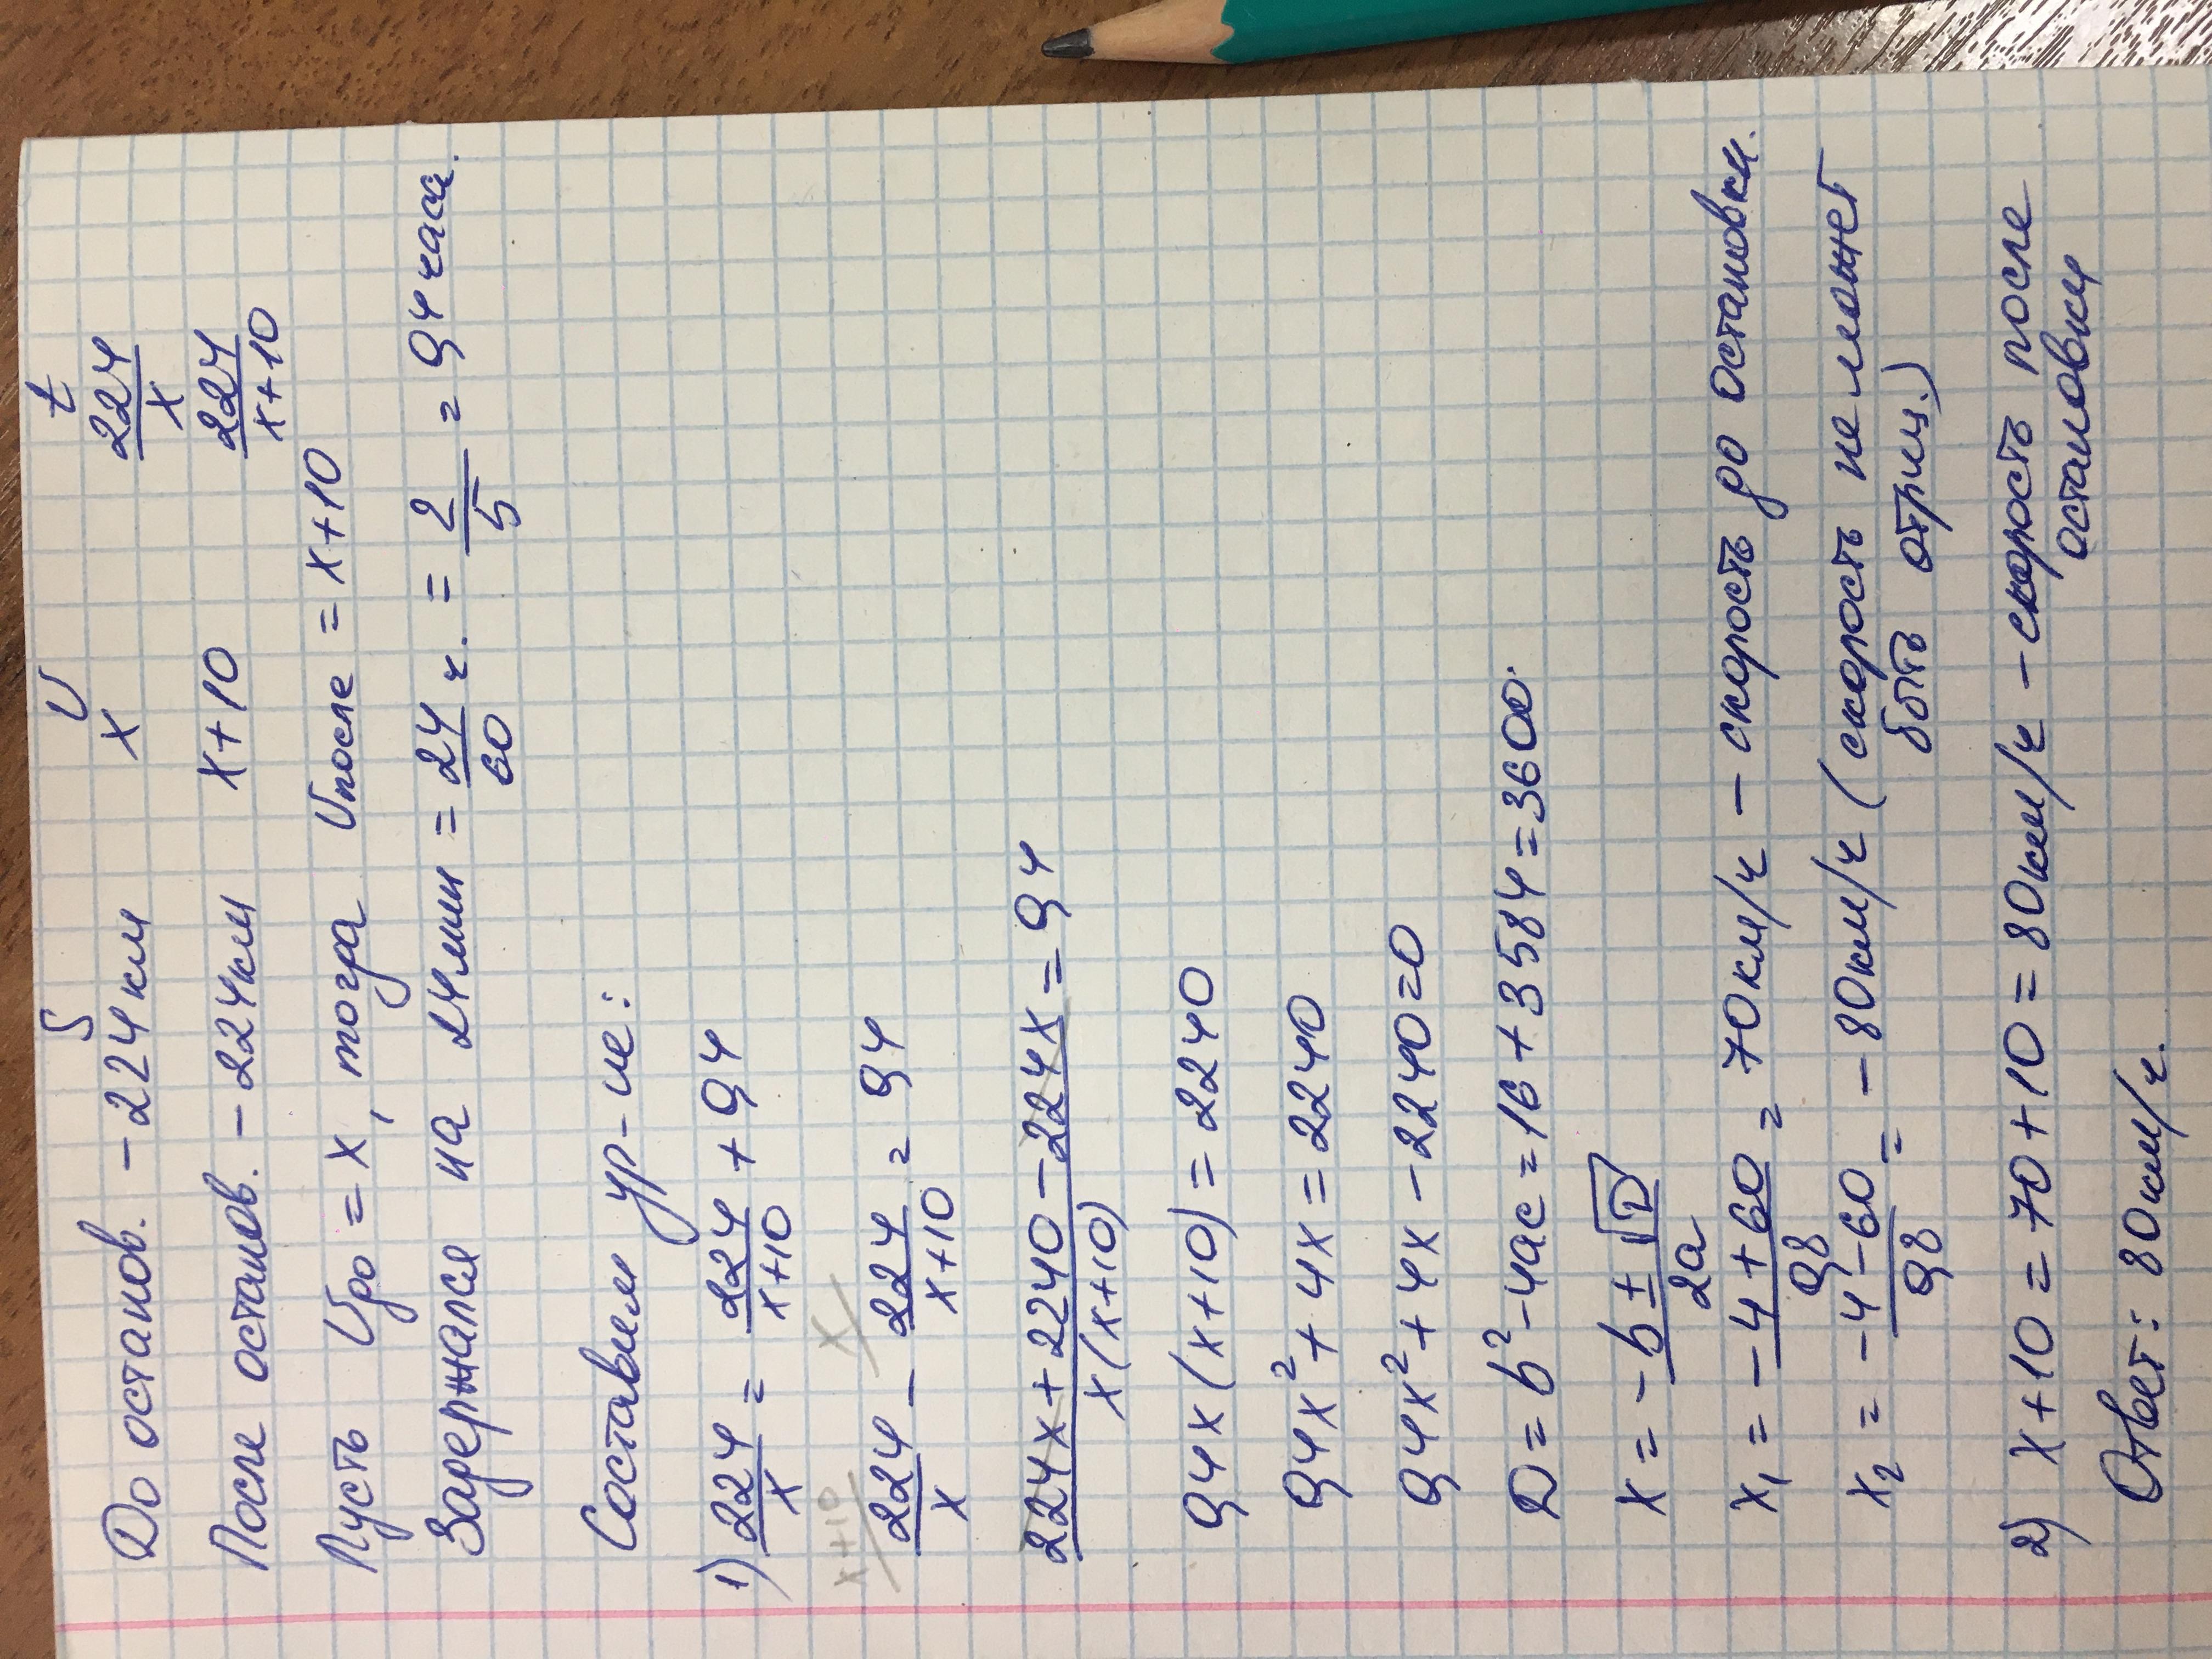 S U t
До останов. – 224 км x 224/x
После останов. – 224 км x+10 224/x+10
Пусть Uдо = x, тогда Uпосле = x+10
Задержался на 24 мин = 24/60 ч. = 2/5 = 0,4 часа.
Составим ур-ие:
1) 224/x = 224/x+10 + 0,4
x+10 x
224/x – 224/x+10 = 0,4
224x+2240–224x/x(x+10) = 0,4
0,4x(x+10) = 2240
0,4x² + 4x = 2240
0,4x² + 4x – 2240 = 0
D = b² – 4ac = 16 + 3584 = 3600.
x = –b ± √D/2a
x₁ = –4+60/0,8 = 70 км/ч – скорость до остановки.
x₂ = –4–60/0,8 = –80 км/ч (скорость не может
быть отриц.)
2) x+10 = 70+10 = 80 км/ч – скорость после
остановки
Ответ: 80 км/ч.